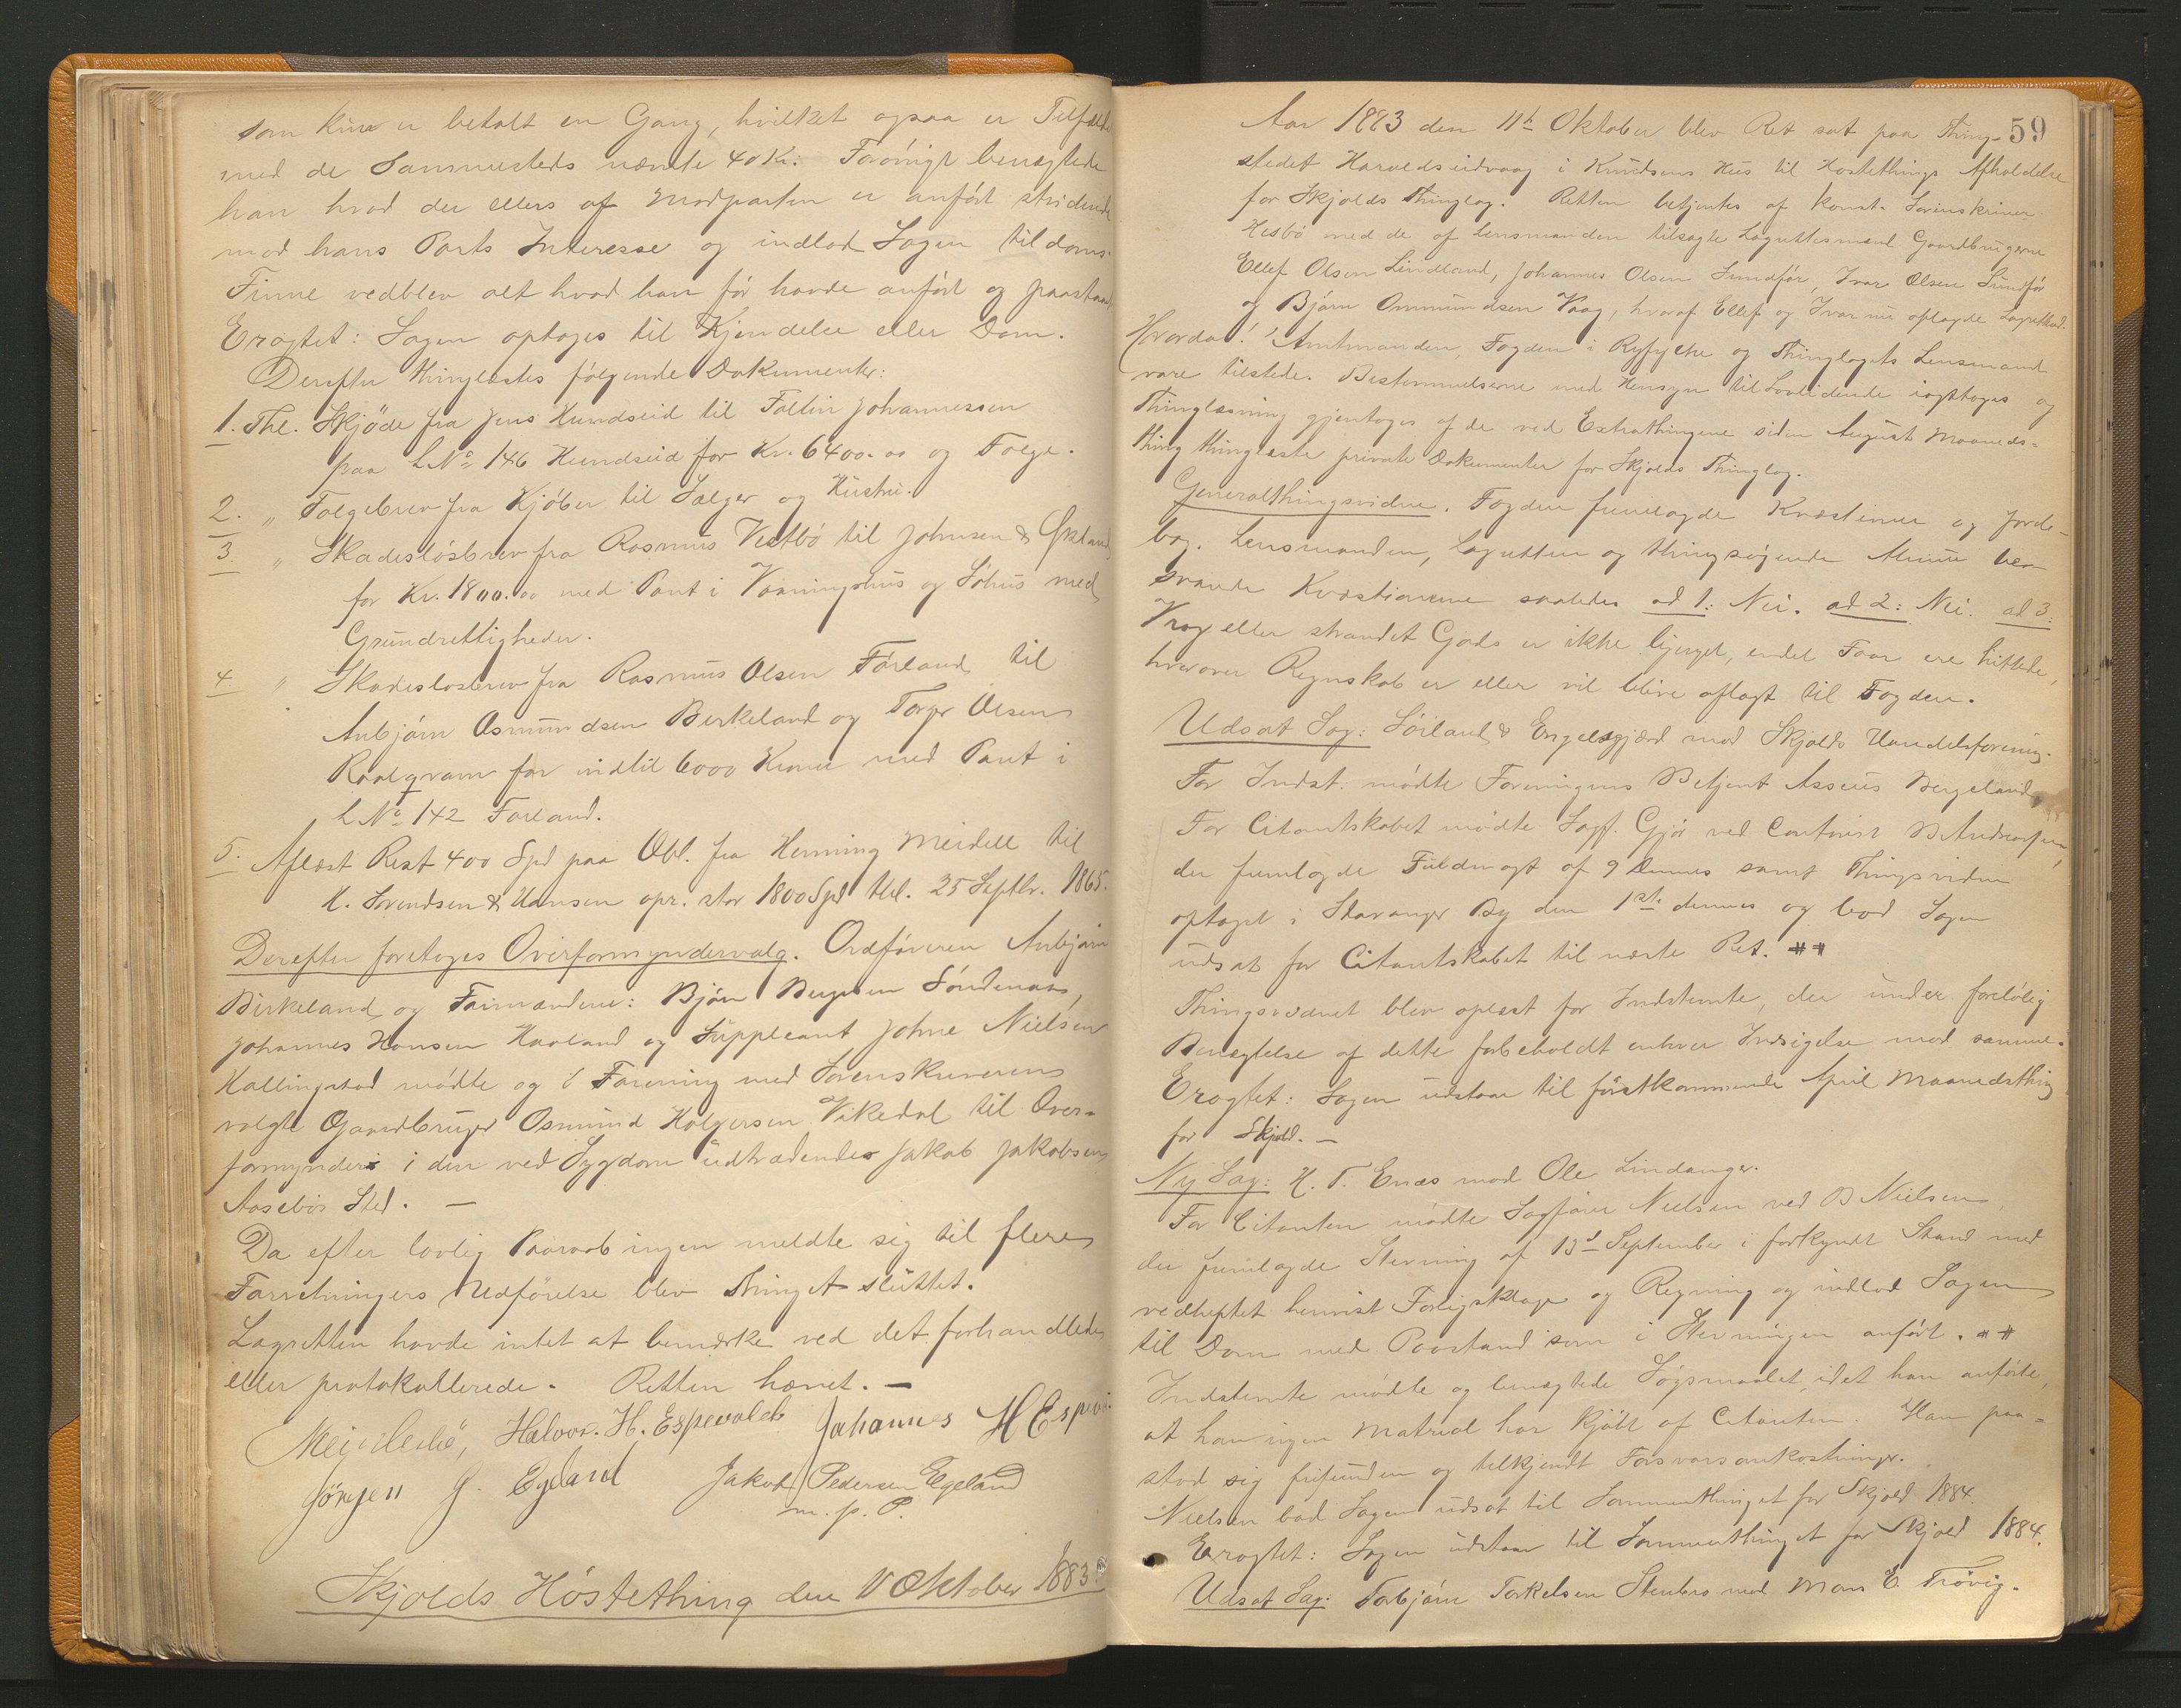 som kun er betalt en Gang, hvilket ogsaa er Tilfældet
med de Sammesteds nævnte 40 Kr: Forövrigt benægtede
han hvad der ellers af Modparten er anfört stridende
mod hans Parts Interesse og indlod Sagen til doms.
Finne vedblev alt hvad han för havde anfört og paastod
Eragtet: Sagen optages til Kjendelse eller Dom.
Derefter thinglæstes fölgende Dokumenter:
1. Thl. Skjöde fra Jens Hundseid til Fältin Johannessen
paa LNo 146 Hundseid for Kr. 6400.00 og Folge.
2. " Folgebrev fra Kjöber til Sælger og Hustru.
3. " Skadeslösbrev fra Rasmus Vestbö til Johnsen &Ökland
for Kr. 1800.00 med Pant i Vaaningshus og Söhus med
Grundrettigheder.
4. " Skadeslosbrev fra Rasmus Olsen Förland til
Anbjörn Osmundsen Birkeland og Torger Olsen
for indtil 6000 Kroner med Pant i
LNo 142 Förland.
5. Aflæst Rest 400 Spd paa Obl. fra Henning Meidell til
H. Svendsen & Hansen opr. stor 1800 Spd thl. 25 Septbr. 1865.
Derefter foretoges Overformyndervalg. Ordföreren Anbjörn
Birkeland og Formændene: Björn Söndenaa,
Johannes Hansen Haaland og Suppleant Johne Nielsen
Hallingstad mödte og i Forening med Sorenskriveren
valgte Gaardbruger Osmund Halgersen Vikedal til Over-
formynder i den ved Sygdom udtrædende Jakob Jakobsen
Aasebös Sted. —
Da efter lovlig Paaraab ingen meldte sig til flere
Forretningers Udförelse blev Thinget sluttet.
Lagretten havde intet at bemærke ved det forhandlede
eller protokollerede. Retten hævet. —
Halvor. H. Espevolds Johannes H Espev
Jörgen J. Egeland Jakob Pedersen Egeland
m. p. P.
Skjolds Höstething den 11 Oktober 1883.
59
Aar 1883 den 11te Oktober blev Ret sat paa Thing-
stedet Haraldseidvaag i Knudsens Hus til Höstethings Afholdelse
for Skjolds Thinglag. Retten betjentes af konst. Sorenskriver
Hesbö med de af Lensmanden tilsagte Lagrettesmænd Gaardbrugerne
Ellef Olsen Lindland, Johannes Olsen Sundför, Ivar Olsen Sundför
og Björn Ommundsen Vaag, hvoraf Ellef og Ivar nu aflagde Lagretteed.
Hvorda! Amtmanden, Fogden i Ryfylke og Thinglagets Lensmand
vare tilstede. Bestemmelserne med Hensyn til Lovlidende iagttoges og
Thinglæsning gjentoges af de ved Extrathingene siden August Maaneds-
thing thinglæste private Dokumenter for Skjolds Thinglag.
Generalthingsvidne. Fogden fremlagde Kvæstioner og Jorde-
bog. Lensmanden, Lagretten og thingsögende Almue be-
svarede Kvæstionerne saaledes ad 1: Nei. ad 2: Nei. ad 3:
Vrag eller strandet Gods er ikke bjerget, endel Faar ere hittede,
hvorover Regnskab er eller vil blive aflagt til Fogden.
Udsat Sag: Söiland & Engelsgjærd mod Skjolds Handelsforening.
For Indst. mödte Foreningens Betjent Asseus Bergeland
For Citantskabet mödte Sagf. Gjör ved Contorist B Andreassen,
der fremlagde Fuldmagt af 9 dennes samt Thingsvidne
optaget i Stavanger By den 1ste dennes og bad Sagen
udsat for Citantskabet til næste Ret. ##
Thingsvidnet blev oplæst for Indstevnte, der under forelöbig
Benægtelse af dette forbeholdt enhver Indsigelse mod samme.
Eragtet: Sagen udstaar til förstkommende April Maanedsthing
for Skjold. —
Ny Sag: H. T. Enæs mod Ole Lindanger.
For Citanten mödte Sagförer Nielsen ved B Nielsen,
der fremlagde Stevning af 13de September i forkyndt Stand med
vedheftet henvist Forligsklage og Regning og indlod Sagen
til Dom med Paastand som i Stevningen anfört. ##
Indstevnte mödte og benægtede Sögsmaalet, idet han anförte,
at han ingen Matrial har kjöbt af Citanten. Han paa-
stod sig frifunden og tilkjendt Forsvarsomkostninger.
Nielsen bad Sagen udsat til Sommerthinget for Skjold 1884.
Eragtet: Sagen udstaar til Sommerthinget for Skjold 1884.
Udsat Sag: Torbjörn Torkelsen Stenbru mod Mons E. Trövig.